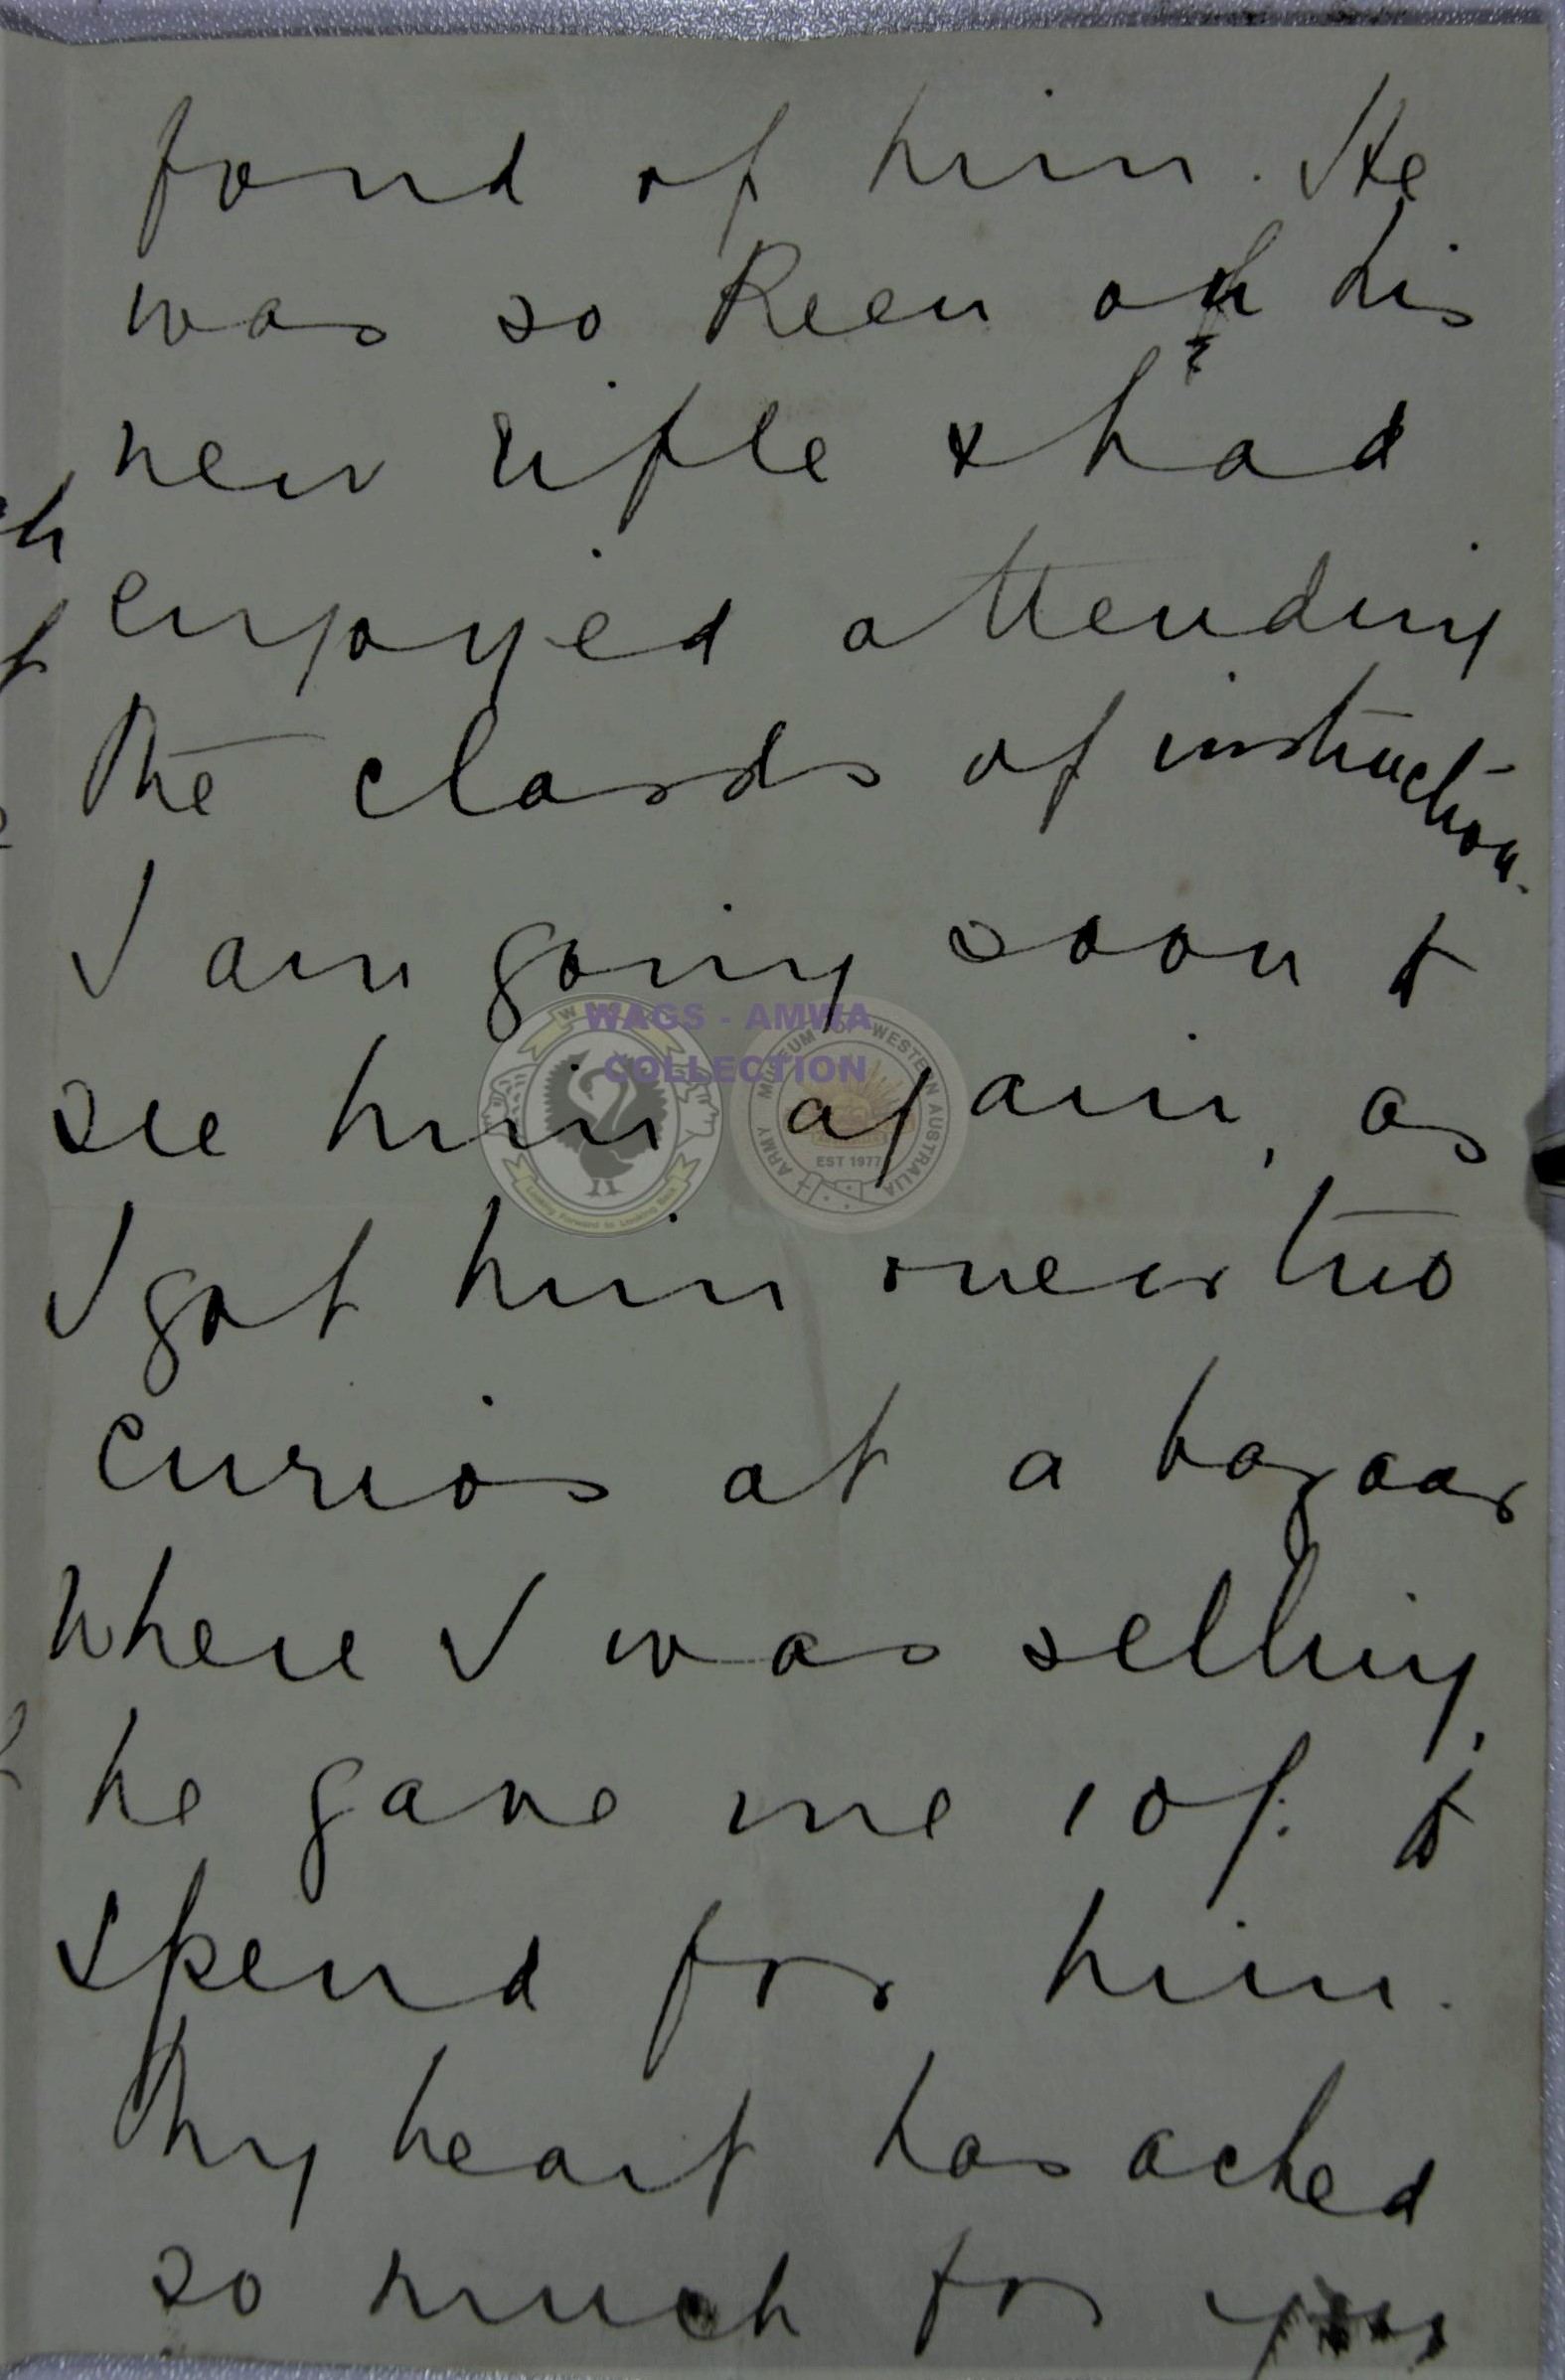 fond of him. He
was so keen on his
new rifle & had
enjoyed attending
the class of instruction.
I am going soon to
see him again, as
I got him one or two
curios at a bazaar
where I was selling,
he gave me 10/. to
spend for him.
My heart has ached
so much for you
WAGS - AMWA
COLLECTION
ARMY MUSEUM OF WESTERN AUSTRALIA
EST 1977
Looking Forward to Looking Back